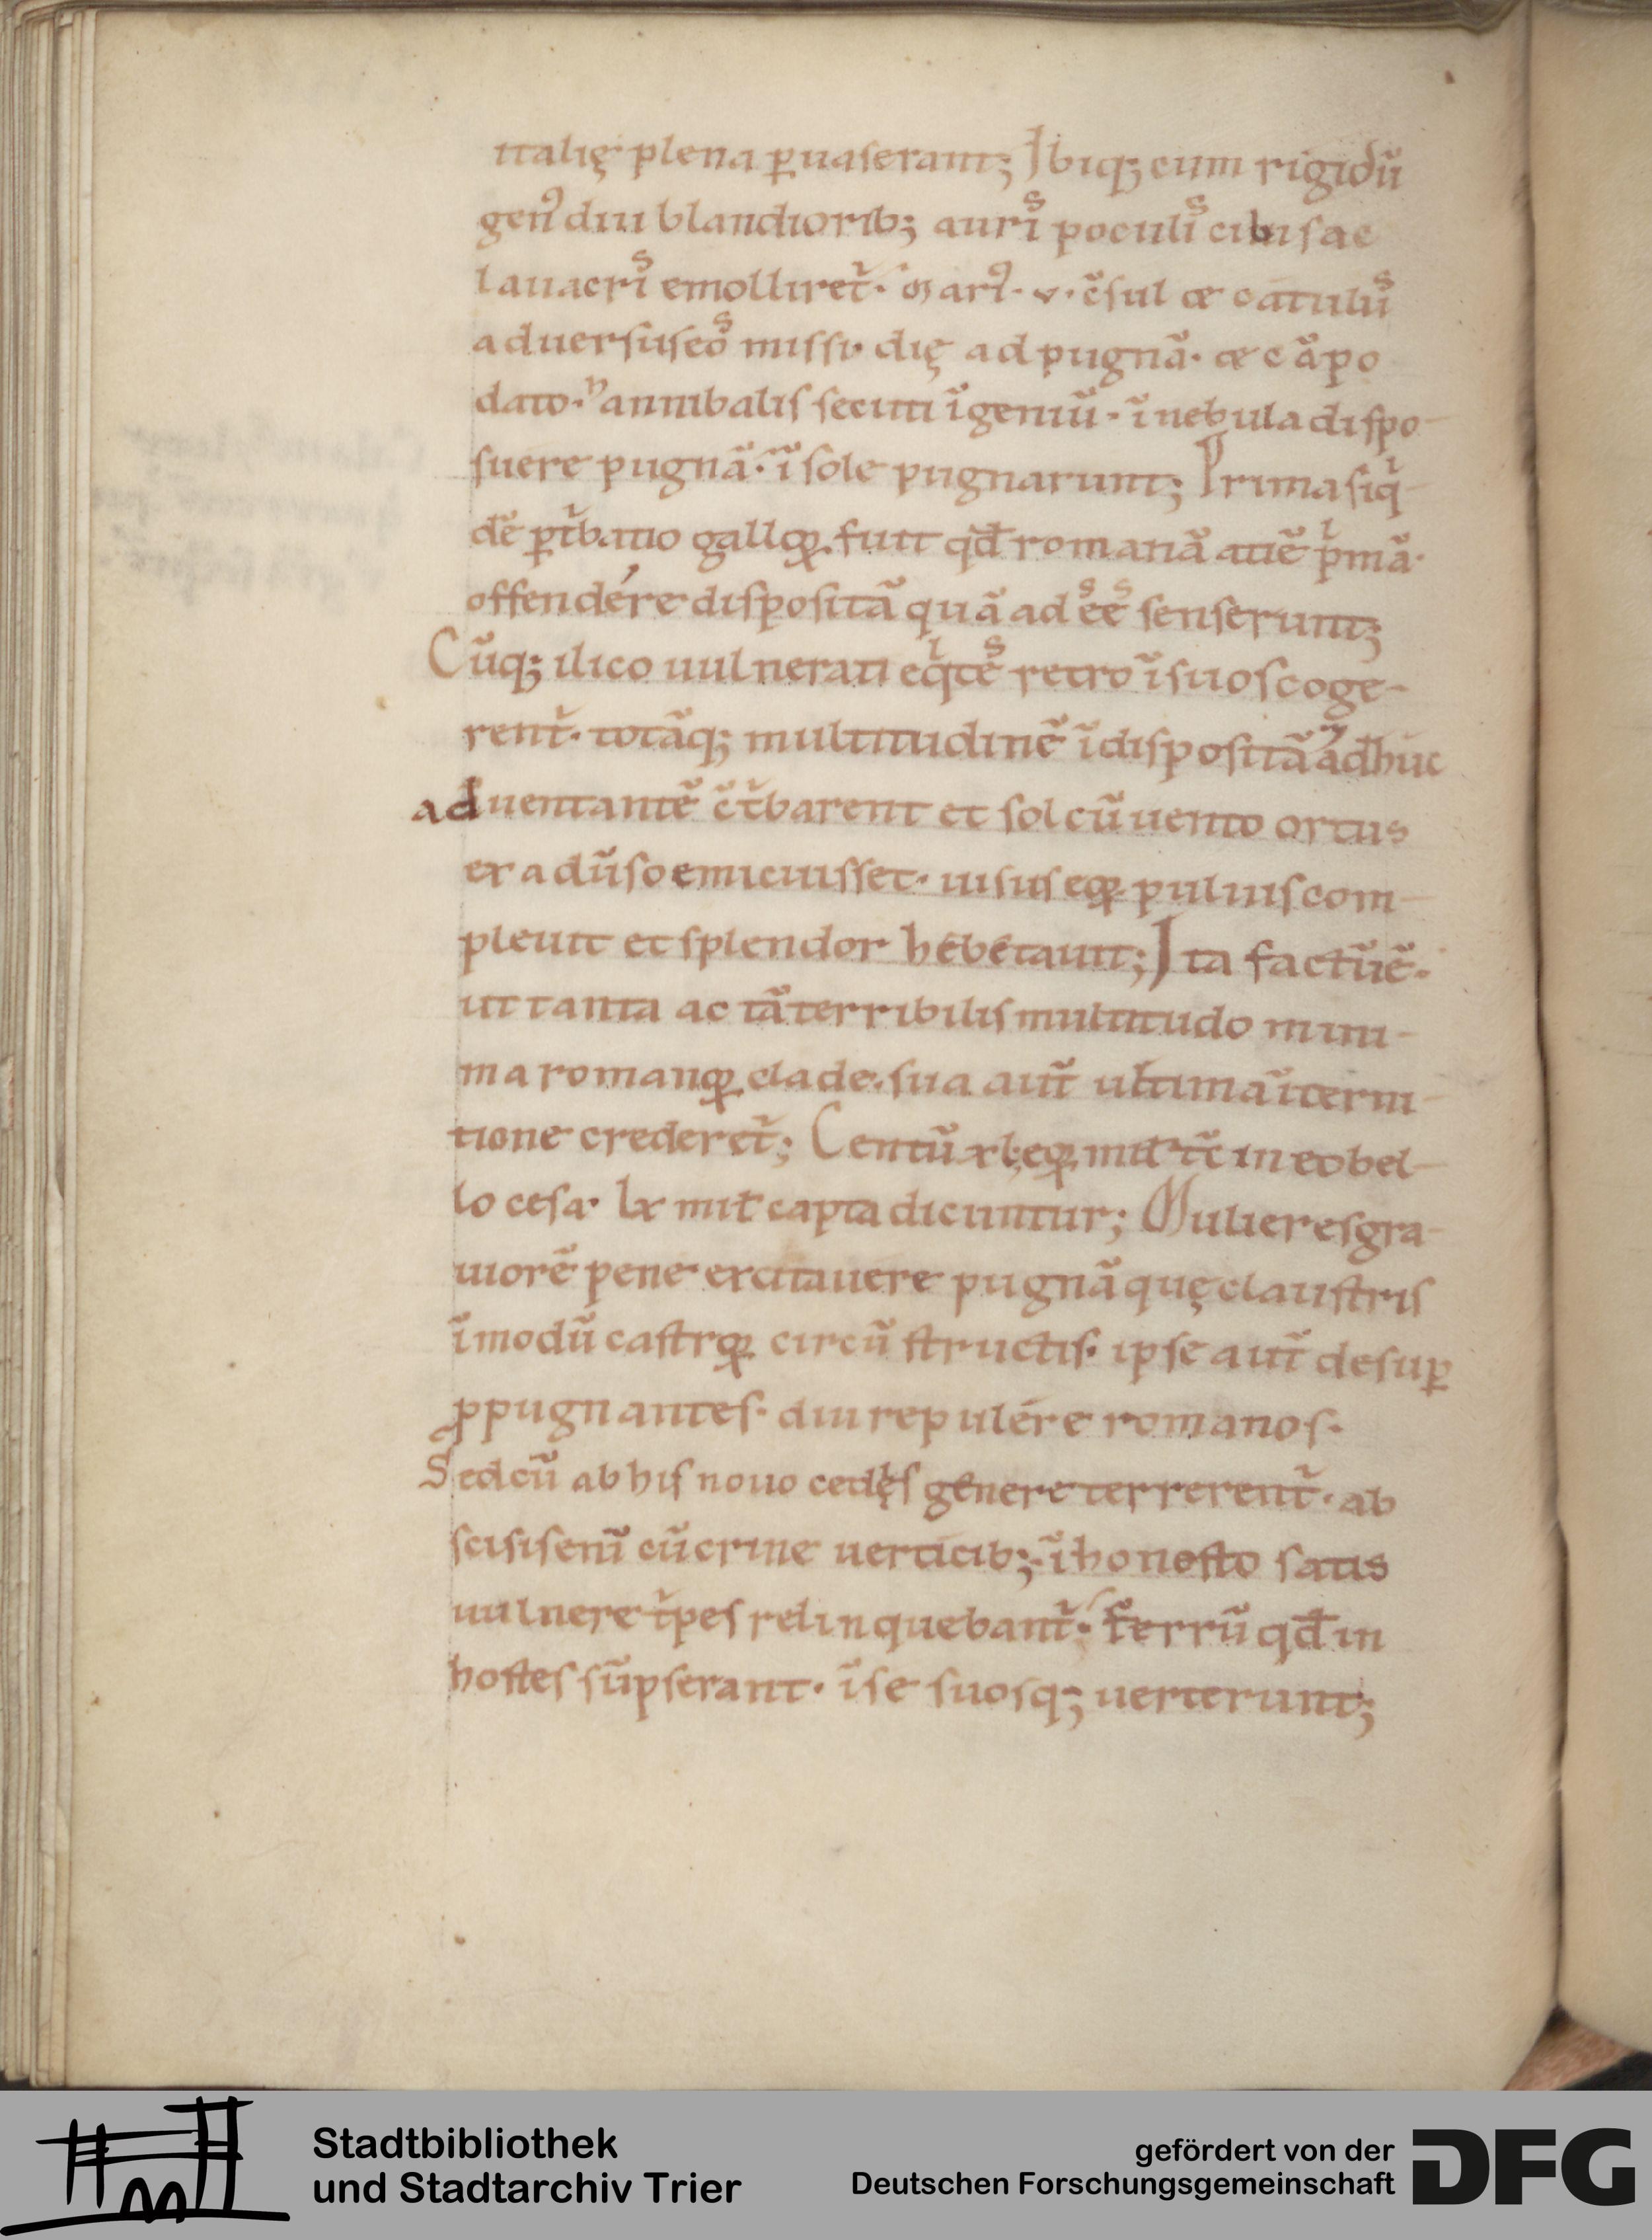 italię plena ꝑuaserant; Ibiq; cum rigidū
gen᷒ diu blandiorib; auriᷤ poculiᷤ cibis ac
lauacriᷤ emolliret᷑. Mari᷒. v. c̄sul & catuluᷤ
aduersus eoᷤ missi. dię ad pugnā. & cāpo
dato. hannibalis secuti īgeniū. ī nebula dispo-
suere pugnā. ī sole pugnarunt; Prima siq͛-
dē ꝑt᷑batio galloꝝ fuit qđ romanā atiē p͛mā.
offendére dispositā quā adēeᷤ senserunt;
Cūq; ilico uulnerati eq͛teᷤ retro ī suos coge-
rent᷑. totāq; multitudinē īdispositā adhuc
aduentantē c̄t᷑barent et sol cū uento ortus
ex adūso emicuisset. uisus eoꝝ puluis com-
pleuit et splendor hebetauit; Ita factū ē.
ut tanta ac tā terribilis multitudo mini-
ma romanoꝝ clade. sua aut̄ ultima īterni-
tione crederet᷑; Centū xl; eoꝝ mil̄ tc̄ in eo bel-
lo cesa. lx mil̄ capta dicuntur; Mulieres gra-
uiorē pene excitauere pugnā quę claustris
ī modū castroꝝ circū structis. ipse aut̄ desuꝑ
ꝓpugnantes. diu repulére romanos.
Sed cū ab his nouo cedis genere terrerent᷑. ab
scisis eni̅ cū crine uerticib;. īhonesto satis
uulnere t᷑pes relinquebant᷑. ferrū qđ in
hostes sūpserant. ī se suosq; uerterunt;
Stadtbibliothek
und Stadtarchiv Trier
gefördert von der
Deutschen Forschungsgemeinschaft
DFG